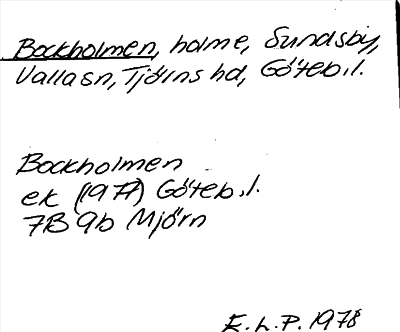 Bockholmen, holme, Sundsby,
Vallasn, Tjörns hd, Göteb.l.
Bockholmen
ek (1977) Göteb.l.
7B 9b Mjörn
E.L.P. 1978